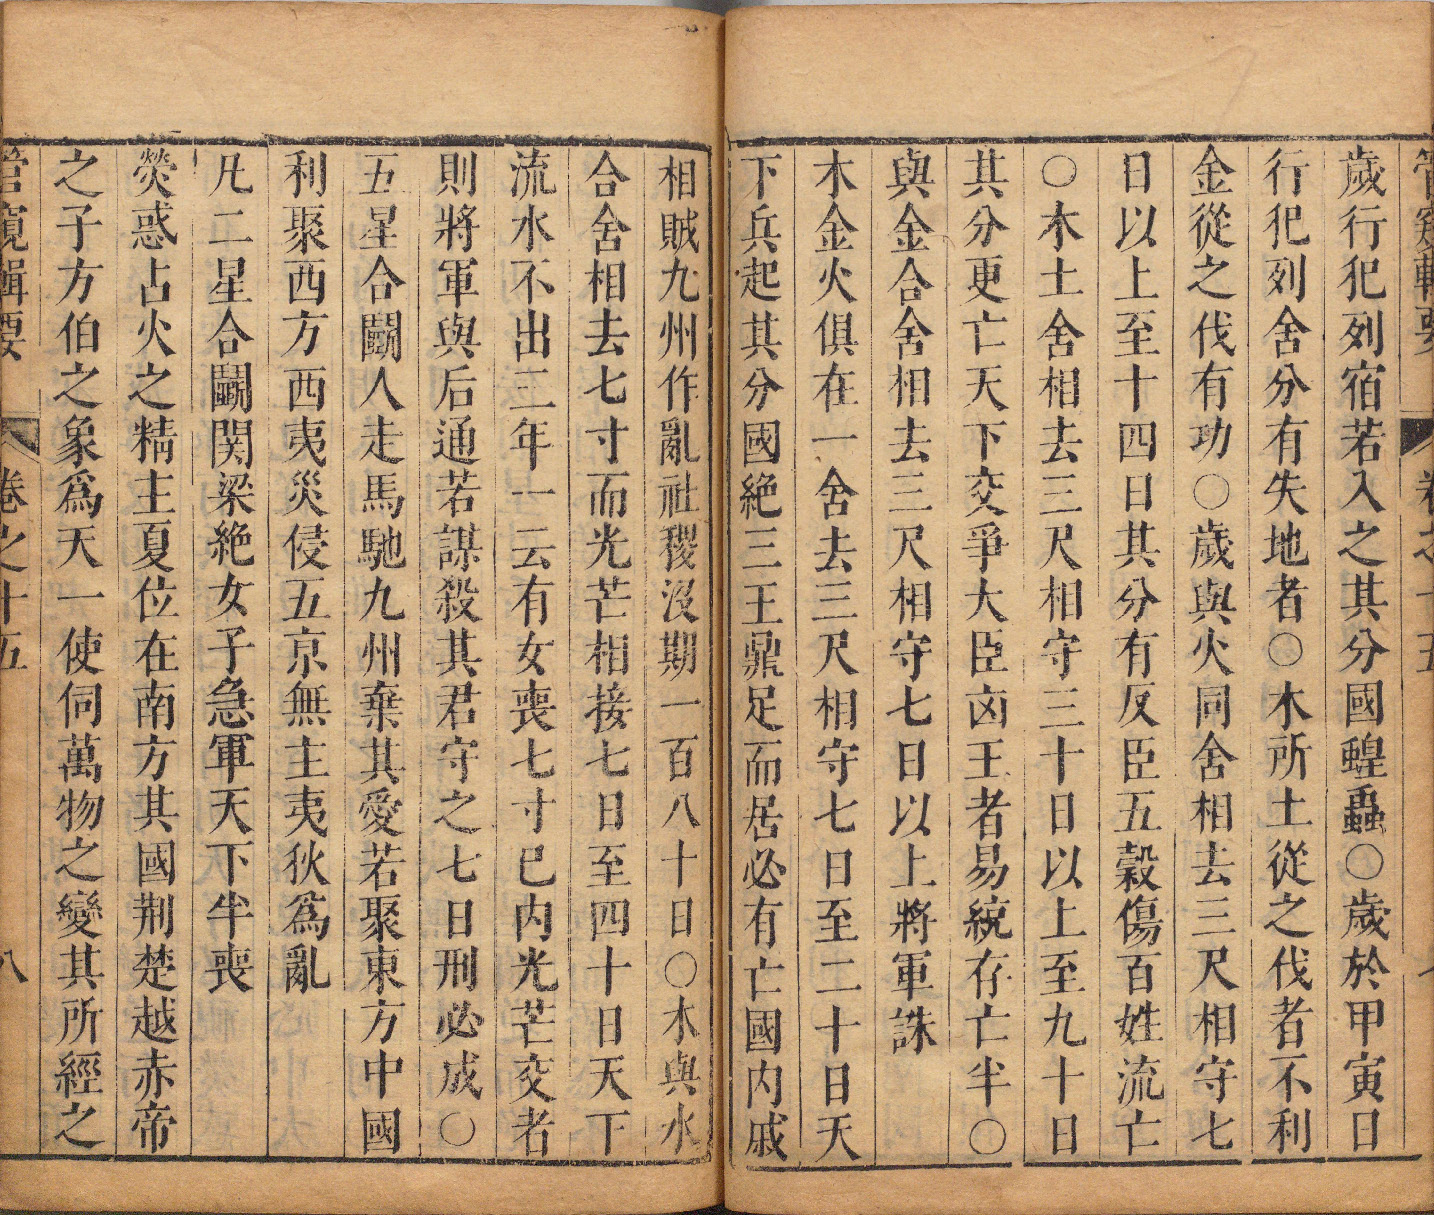 管窺輯要 卷之十五
歲行犯列宿若入之其分國蝗蟲○歲於甲寅日
行犯列舍分有失地者○木所土從之伐者不利
金從之伐有功○歲與火同舍相去三尺相守七
日以上至十四日其分有反臣五穀傷百姓流亡
○木土舍相去三尺相守三十日以上至九十日
其分更亡天下交爭大臣凶王者易統存亡半○
與金合舍相去三尺相守七日以上將軍誅
木金火俱在一舍去三尺相守七日至二十日天
下兵起其分國絕三王鼎足而居必有亡國內戚
相賊九州作亂社稷沒期一百八十日○木與水
合舍相去七寸而光芒相接七日至四十日天下
流水不出三年一云有女喪七寸已內光芒交者
則將軍與后通若謀殺其君守之七日刑必成○
五星合鬬人走馬馳九州棄其愛若聚東方中國
利聚西方西夷災侵五京無主夷狄爲亂
凡二星合鬬関梁絕女子急軍天下半喪
熒惑占火之精主夏位在南方其國荆楚越赤帝
之子方伯之象爲天一使伺萬物之變其所經之
管窺輯要 卷之十五 八